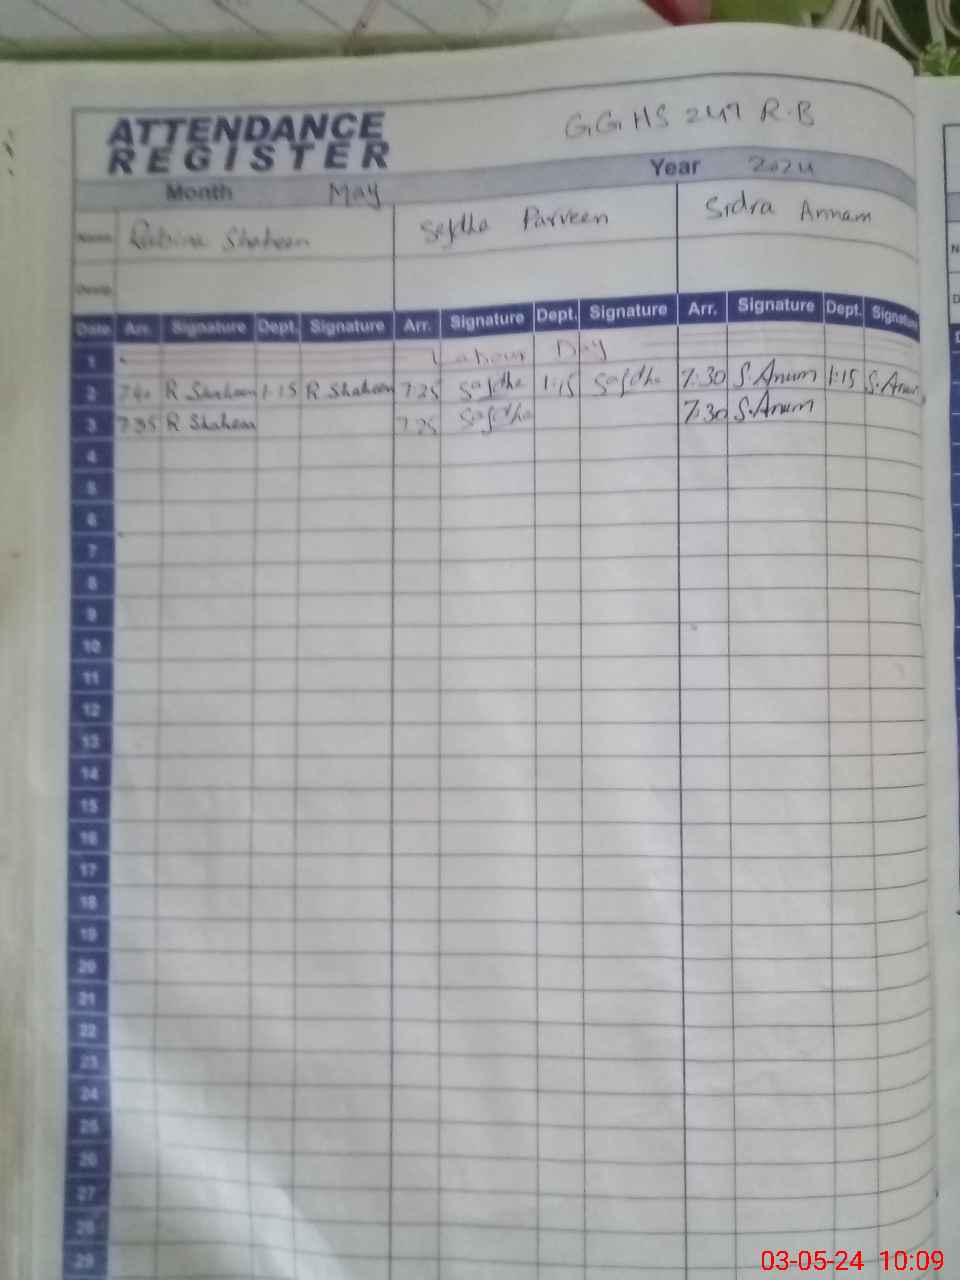 GGHS 247 R.B
ATTENDANCE
REGISTER
Year 2024
Month May
Name Rabina Shaheen Sajdha Parveen Sidra Annam
Desig.
Date Arr. Signature Dept. Signature Arr. Signature Dept. Signature Arr. Signature Dept. Signature
1 Labour Day
2 7:40 R Shaheen 1:15 R Shaheen 7:25 Sajdha 1:15 Sajdha 7:30 S.Anum 1:15 S.Anum
3 7:35 R Shaheen 7:25 Sajdha 7:30 S.Anum
4
5
6
7
8
9
10
11
12
13
14
15
16
17
18
19
20
21
22
23
24
25
26
27
28
29
03-05-24 10:09